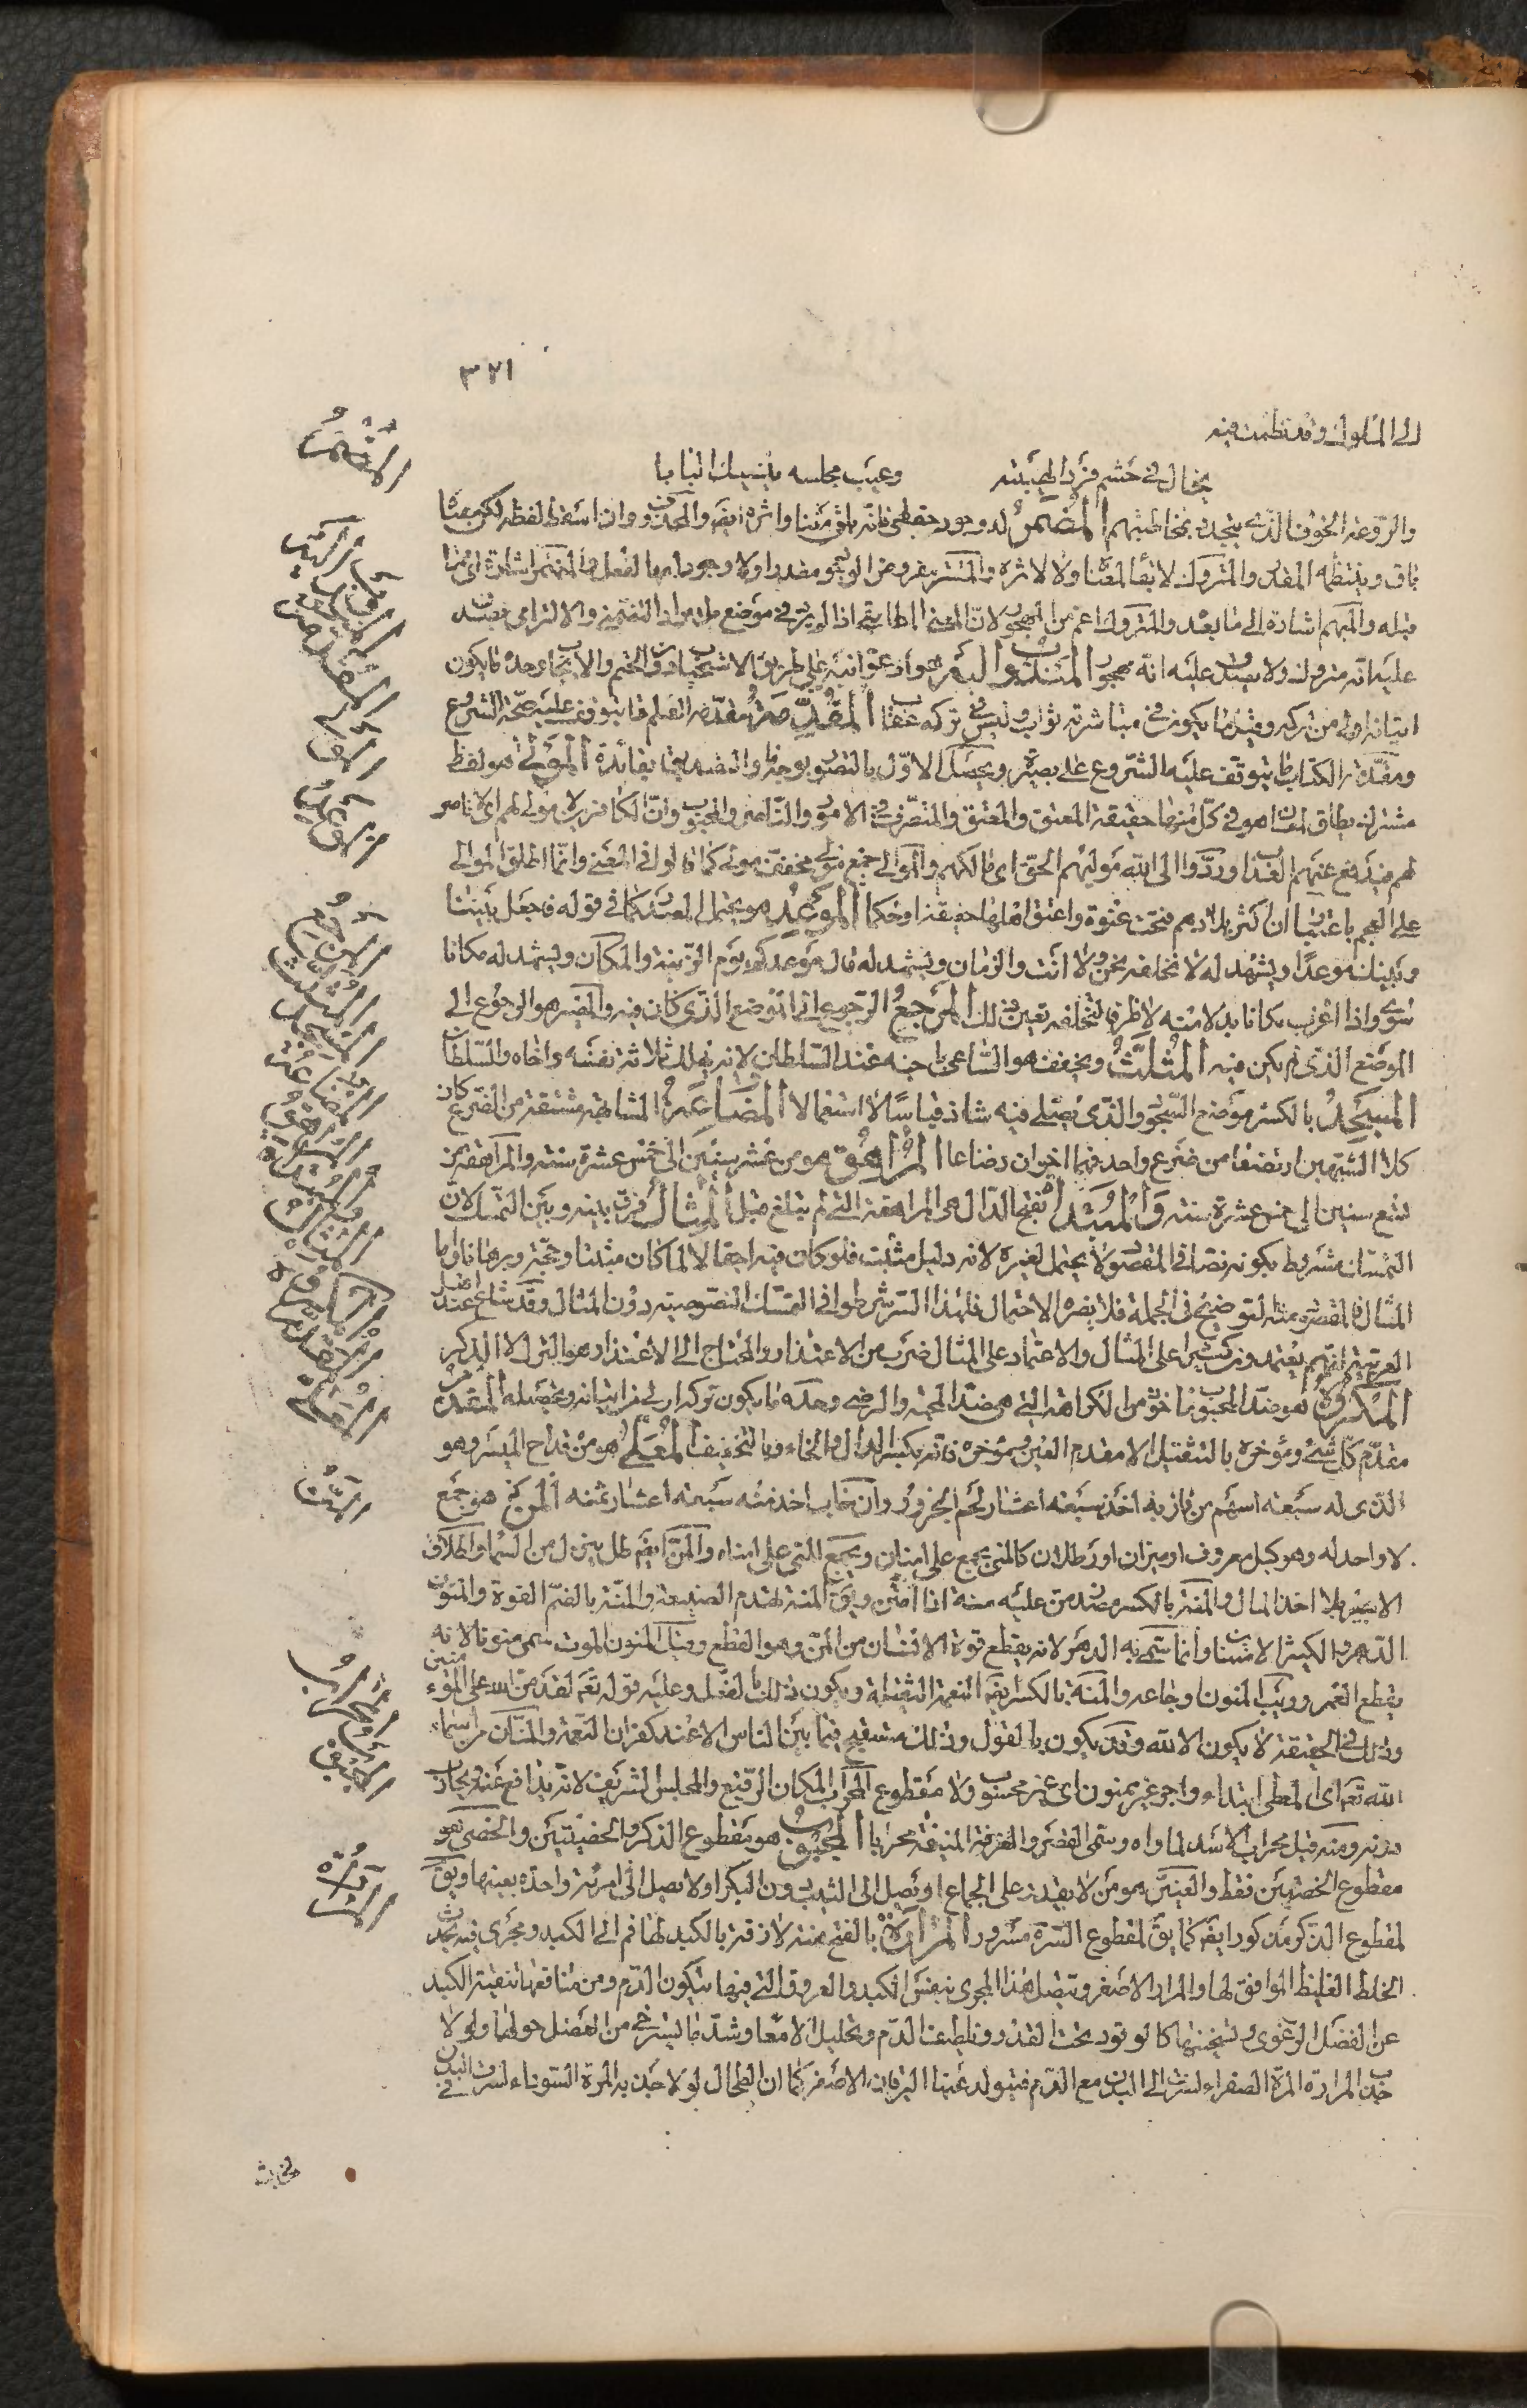 ٣٢١
الى الملوك وقد نظمت فيه
يختال في حشم فزد لهيبته وعيب مجلسه ينسيك البابا
والروعة الخوف الذي يجده بمخاطبتهم المضمر له وجود حقيقي فانه باق معنا واثره ايضا والمحذوف وان اسقط لفظه لكن معناه
باق وينتظمه المقدر والمتروك لا بقاء لمعناه ولا لاثره والمستتر
قبله والمبهم اشارة الى ما بعد والمتروك اعم من المهجور لان المعنى المطابقي اذا لم يرد في موضع
عليه انه متروك ولا يصدق عليه انه مهجور المندوب اليه هو ادعوا اليه على طريق الاستحباب دون الحتم والايجاب وحده ما يكون
اتيانه اولى من تركه وقيل ما يكون في مباشرته ثواب وليس في تركه عقاب المقدمة مقدمة العلم ما يتوقف عليه صحة الشروع
ومقدمة الكتاب ما يتوقف عليه الشروع على بصيرة ويحصل الاول بالتصور بوجه ما والتصديق بفائدة المولى هو لفظ
مشترك يطلق لمعان هو في كل منها حقيقة المعتق والمعتق والمتصرف في الامور والناصر والمحبوب وان الكافرين لا مولى لهم اى لا ناصر
لهم فيدفع عنهم العذاب وردوا الى الله موليهم الحق اى مالكهم والموالى جمع مولى مخفف مولى كما قالوا في المعنى وانما اطلق الموالى
على العجم باعتبار ان اكثر بلادهم فتحت عنوة واعتق اهلها حقيقة او حكما الموعد هو يحتمل المصدر كما في قوله فاجعل بيننا
وبينك موعدا ويشهد له لا نخلفه نحن ولا انت والزمان ويشهد له قال موعدكم يوم الزينة والمكان ويشهد له مكانا
سوى واذا اعرب مكانا بدلا منه لا ظرفا لنخلفه تعين ذلك المرجع الرجوع الى الموضع الذي كان فيه والمصير هو الرجوع الى
الموضع الذي لم يكن فيه المثلث ويخفف هو الساعى باخيه عند السلطان لانه يهلك ثلاثة نفسه واخاه والسلطان
المسجد بالكسر موضع السجود والذي يصلى فيه شاذ قياسا لا استعمالا المضارعة المشابهة مشتقة من الضرع كان
كلا الشبهين ارتضعا من ضرع واحد فهما اخوان رضاعا المراهق هو من عشر سنين الى خمس عشرة سنة والمراهقة من
تسع سنين الى خمس عشرة سنة والمبتدأ بفتح الدال هى المراهقة التى لم تبلغ قبل المثال فرق بينه وبين التمسك لان
التمسك مشروط بكونه نصا في المقصود لا يحتمل لغيره لانه دليل مثبت فلو كان فيه احتمال لما كان مثبتا وحجة وبرهانا واما
المثال فالمقصود منه التوضيح في الجملة فلا يضره الاحتمال فلهذا اشترطوا في التمسك النصوصية دون المثال وقد شاع عند اهل
العربية انهم يعتمدون كثيرا على المثال والاعتماد على المثال ضرب من الاعتذار والمحتاج الى الاعتذار هو الترك لا الذكر
المكروه هو ضد المحبوب مأخوذ من الكراهة التى هى ضد المحبة والرضى وحده ما يكون تركه اولى من اتيانه وتحصيله المقدم
مقدم كل شئ ومؤخره بالتثقيل الا مقدم العين ومؤخره فانه بكسر الدال والخاء وبالتخفيف المعلى هو من قداح الميسر وهو
الذي له سبعة اسهم من فاز به اخذ سبعة اعشار لحم الجزور وان خاب اخذ منه سبعة اعشار ثمنه المن هو جمع
لا واحد له وهو كيل معروف او ميزان او رطلان كالمنى يجمع على امنان ويجمع المنى على امناء والمن ايضا طل ينزل من السماء واطلاق
الاسير بلا اخذ المال والمنة بالكسر مصدر من عليه منة اذا امتن ويق المنة تهدم الصنيعة والمنة بالضم القوة والمنون
الدهر والكثير الامتنان وانما سمى به الدهر لانه يقطع قوة الانسان من المن وهو القطع وقيل المنون الموت سمى منونا لانه
يقطع العمر وريب المنون اوجاعه والمنة بالكسر ايضا النعمة الثقيلة ويكون ذلك بالفعل وعليه قوله تعالى لقد من الله على المؤمنين
وذلك في الحقيقة لا يكون الا لله وقد يكون بالقول وذلك مستقبح فيما بين الناس الا عند كفران النعمة والمنان من اسماء
الله تعالى اى المعطى ابتداء واجر غير ممنون اى غير محسوب ولا مقطوع المحراب المكان الرفيع والمجلس الشريف لانه يدافع عنه ويحارب
دونه ومنه قيل محراب الاسد لمأواه وسمى القصر والغرفة المنيفة محرابا المجبوب هو مقطوع الذكر والخصيتين والخصى هو
مقطوع الخصيتين فقط والعنين هو من لا يقدر على الجماع او يصل الى الثيب دون البكر او لا يصل الى امرئة واحدة بعينها ويق
لمقطوع الذكر مذكور ايضا كما يق لمقطوع السرة مسرور المرارة بالفتح هنة لازقة بالكبد لها فم الى الكبد ومجرى فيه تجذب
الخلط الغليظ الموافق لها والمرار الاصفر وتتصل هذا المجرى بنفس الكبد والعروق التى فيها يتكون الدم ومن منافعها تنقية الكبد
عن الفضل الرغوى وتسخينها كالوقود تحت القدر وتلطيف الدم وتحليل الامعاء وشد ما يسترخى من العضل حولها ولولا
جذب المرارة المرة الصفراء لسرت الى البدن مع الدم فيتولد عنها اليرقان الاصفر كما ان الطحال لولا جذبه المرة السوداء لسرت في البدن